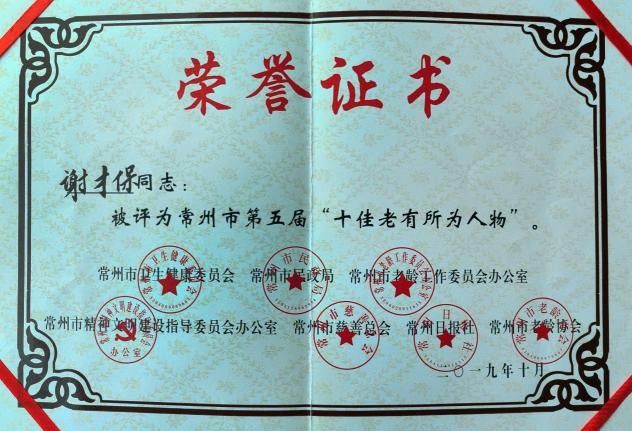 荣誉证书
谢才保同志：
被评为常州市第五届“十佳老有所为人物”。
常州市卫生健康委员会 常州市民政局 常州市老龄工作委员会办公室
常州市精神文明建设指导委员会办公室 常州市慈善总会 常州日报社 常州市老龄协会
二〇一九年十月